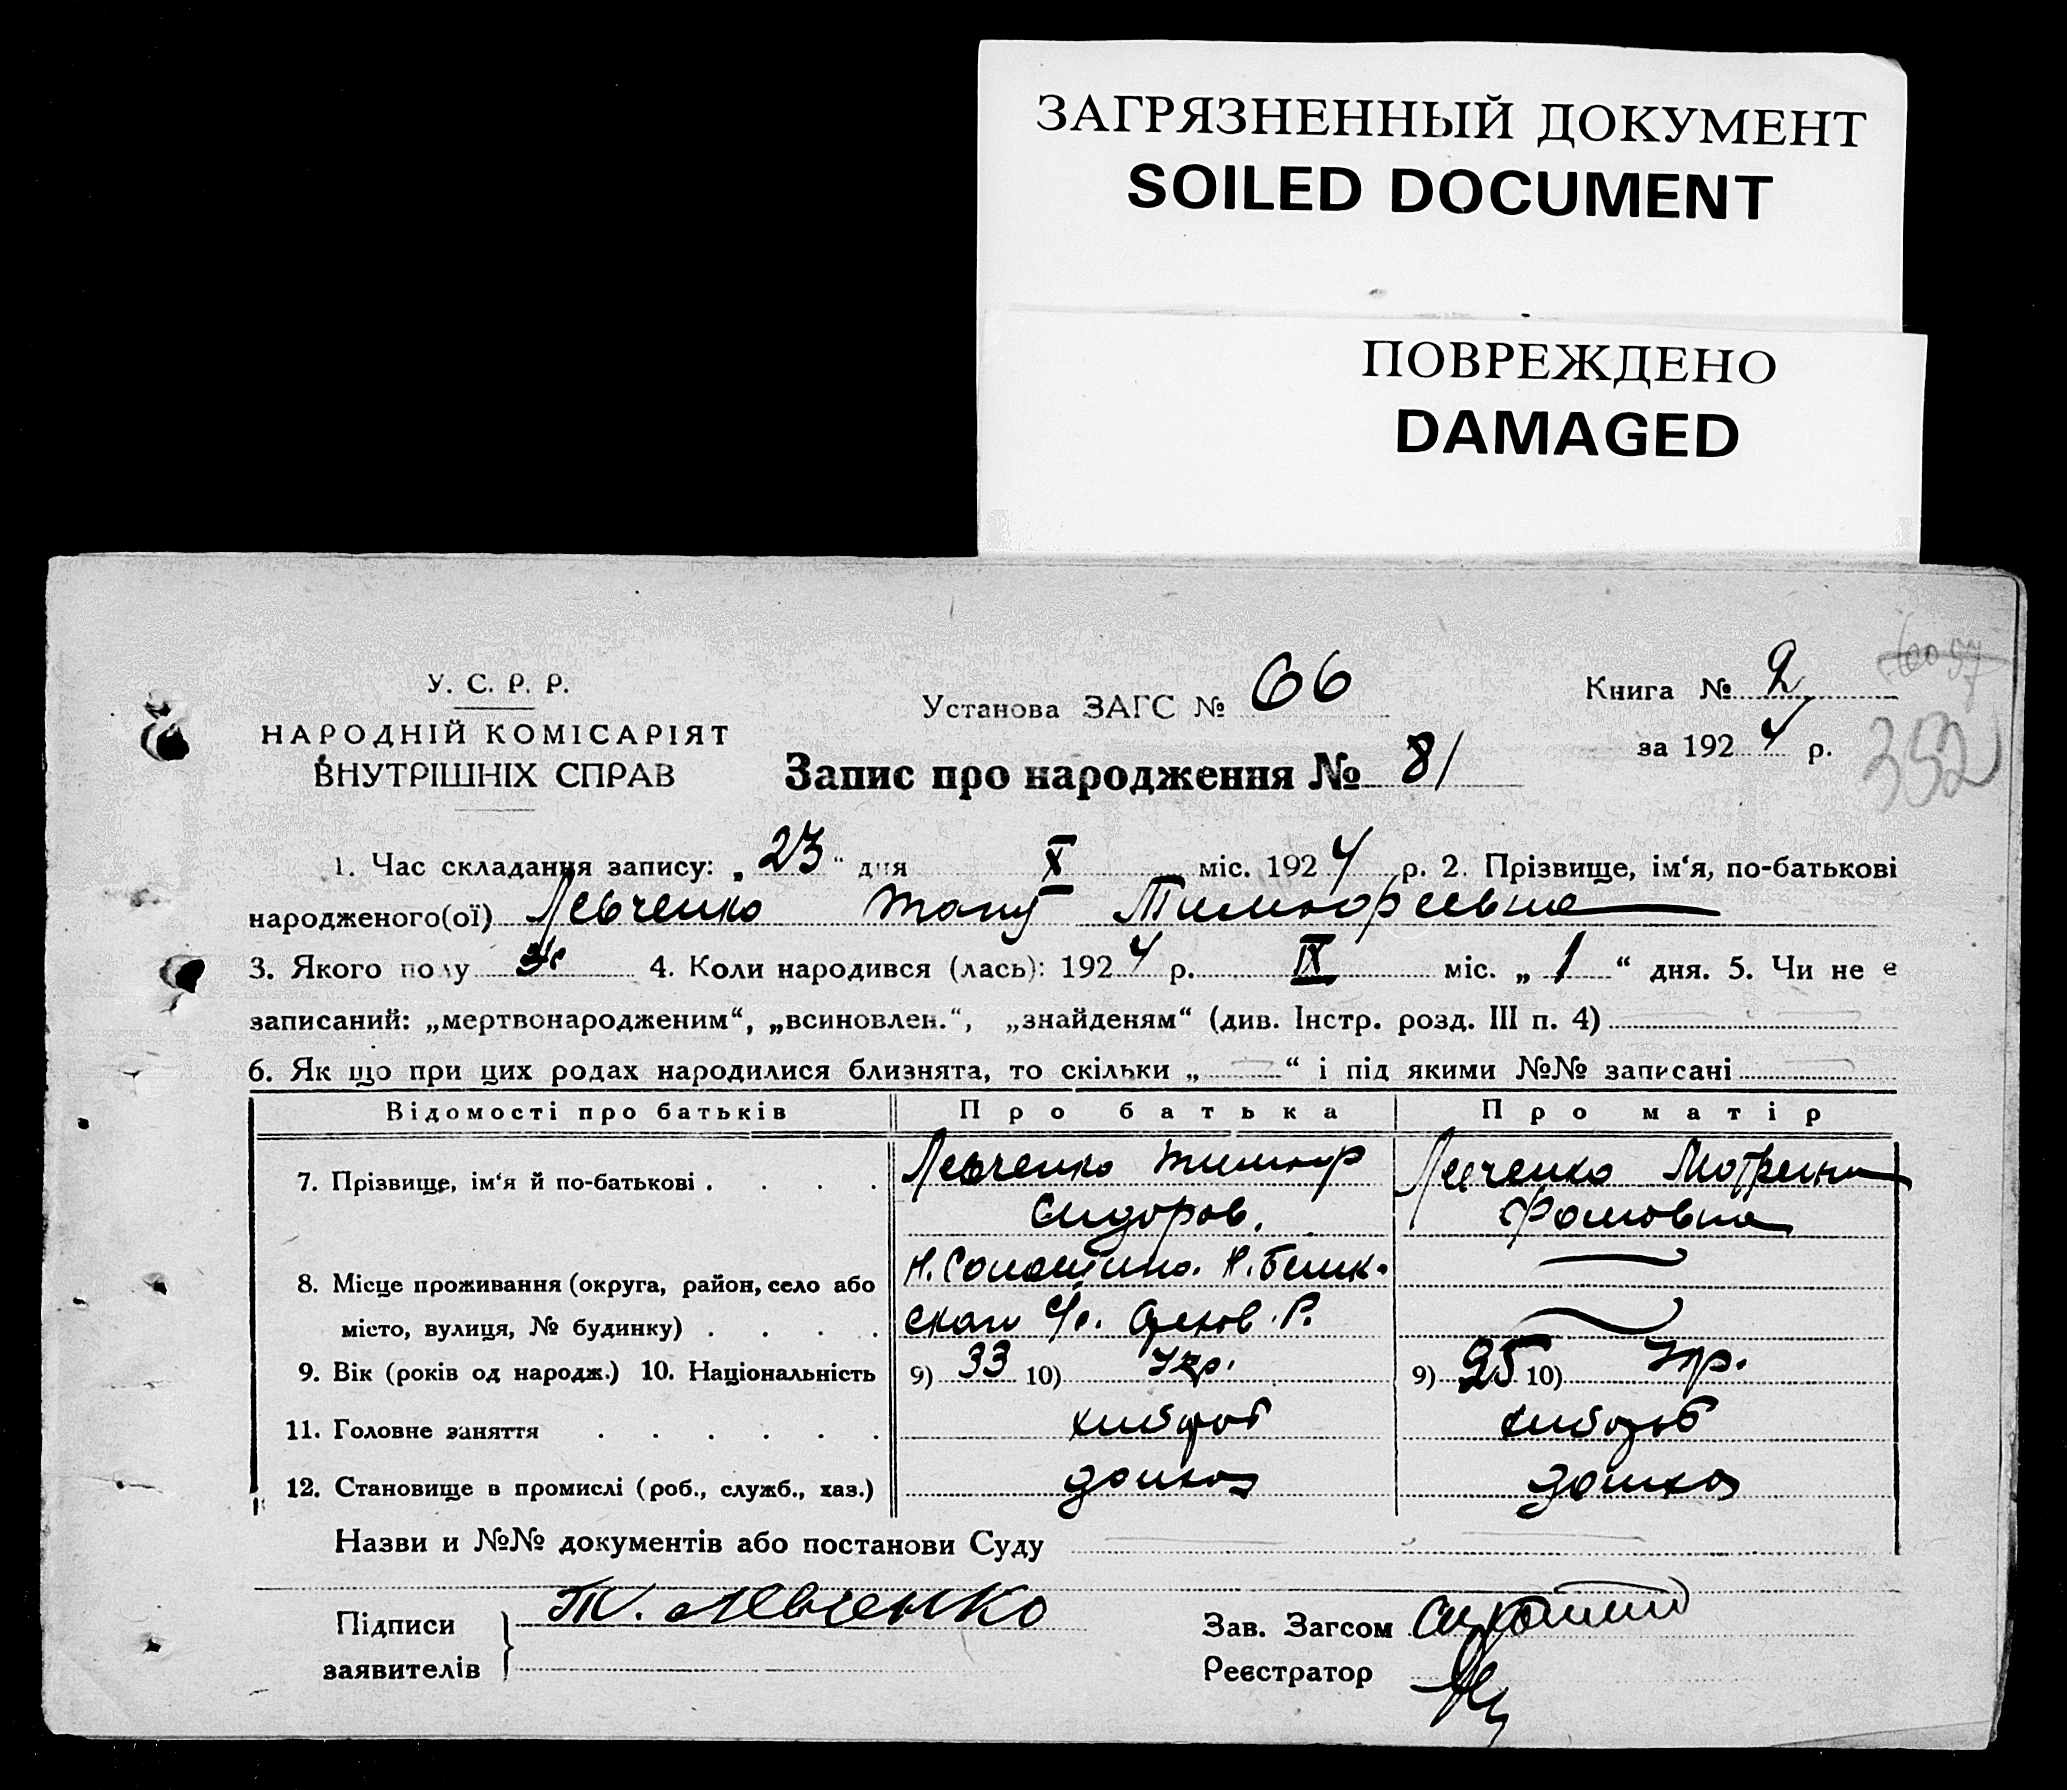 ЗАГРЯЗНЕННЫЙ ДОКУМЕНТ
SOILED DOCUMENT
ПОВРЕЖДЕНО
DAMAGED
У. С. Р. Р.
НАРОДНІЙ КОМІСАРІЯТ
ВНУТРІШНІХ СПРАВ
Установа ЗАГС № 66
Книга № 2
за 1924 р.
352
Запис про народження № 81
1. Час складання запису: „23“ дня X міс. 1924 р. 2. Прізвище, ім‘я, по-батькові
народженого(ої) Левченко Тимофеевна
3. Якого полу ж 4. Коли народився (лась): 1924 р. IX міс. „1“ дня. 5. Чи не є
записаний: „мертвонародженим“, „всиновлен.“, „знайденям“ (див. Інстр. розд. III п. 4)
6. Як що при цих родах народилися близнята, то скільки „ “ і під якими №№ записані
Відомості про батьків Про батька Про матір
7. Прізвище, ім‘я й по-батькові . . . . Левченко Тимофр Левченко Мотрена
Сидоров. Фомовна
8. Місце проживання (округа, район, село або
місто, вулиця, № будинку) . . . .
9. Вік (років од народж.) 10. Національність 9) 33 10) Укр. 9) 25 10) Укр.
11. Головне заняття . . . . . .
12. Становище в промислі (роб., служб., хаз.)
Назви и №№ документів або постанови Суду
Підписи Т. Левченко Зав. Загсом
заявителів Реєстратор